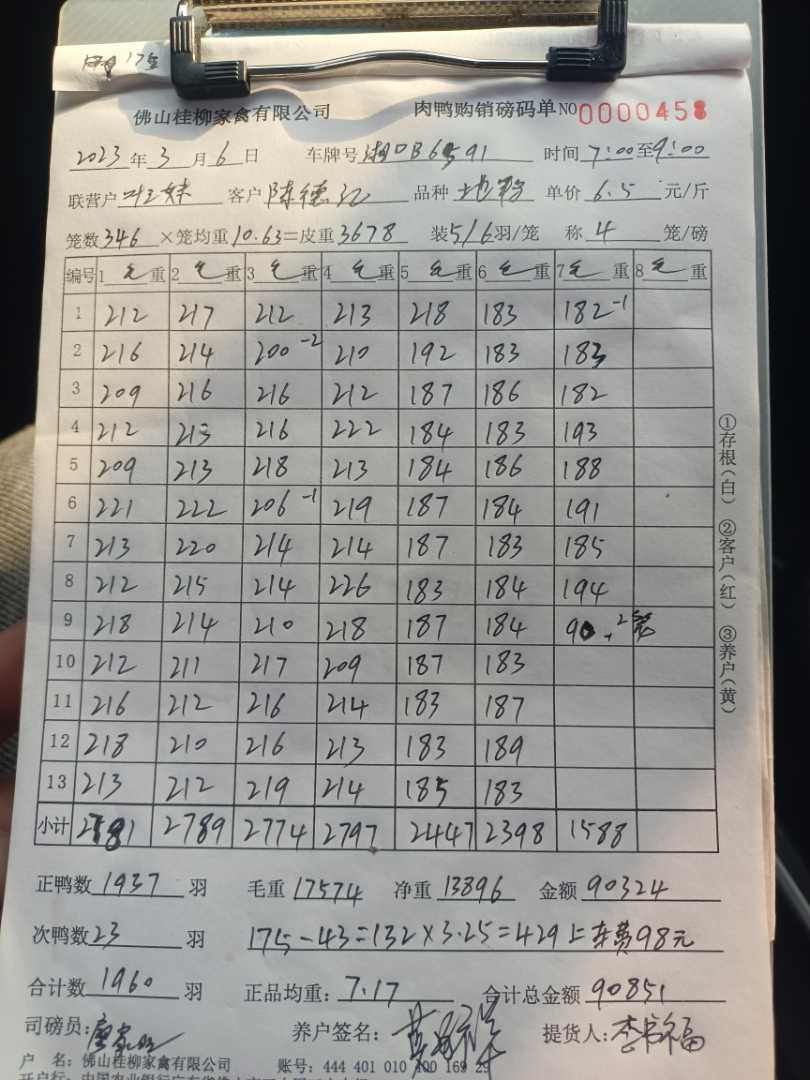 佛山桂柳家禽有限公司 肉鸭购销磅码单 NO 0000458
2023年3月6日 车牌号 湘 时间 7:00至9:00
联营户 妹 客户 陈德 品种 单价 6.5 元/斤
笼数 346 ×笼均重 10.63 =皮重 3678 装 5/6 羽/笼 称 4 笼/磅
编号 1 毛重 2 毛重 3 毛重 4 毛重 5 毛重 6 毛重 7 毛重 8 毛重
1 212 217 212 213 218 183 182 -1
2 216 214 200 -2 210 192 183 183
3 209 216 216 212 187 186 182
4 212 213 216 222 184 183 193
5 209 213 218 213 184 186 188
6 221 222 206 -1 219 187 184 191
7 213 220 214 214 187 183 185
8 212 215 214 226 183 184 194
9 218 214 210 218 187 184 90 2笼
10 212 211 217 209 187 183
11 216 212 216 214 183 187
12 218 210 216 213 183 189
13 213 212 219 214 185 183
小计 2781 2789 2774 2797 2447 2398 1588
①存根(白) ②客户(红) ③养户(黄)
正鸭数 1937 羽 毛重 17574 净重 13896 金额 90324
次鸭数 23 羽 175-43=132×3.25=429 上车费98元
合计数 1960 羽 正品均重: 7.17 合计总金额 90851
司磅员: 养户签名: 提货人: 李福
户 名: 佛山桂柳家禽有限公司 账号: 444 401 010 400 169 29